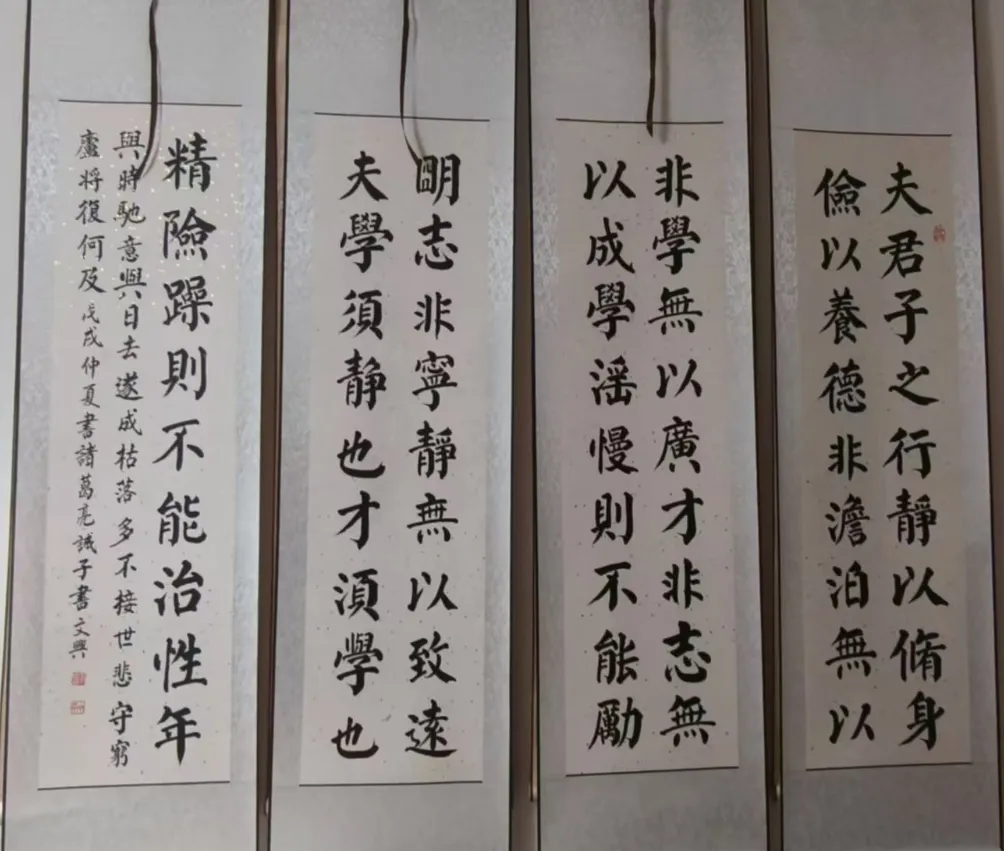 夫君子之行靜以脩身
儉以養德非澹泊無以
非學無以廣才非志無
以成學滛慢則不能勵
明志非寧靜無以致遠
夫學須静也才湏學也
精險躁則不能治性年
與時馳意與日去遂成枯落多不接世悲守窮
廬將復何及戊戌仲夏書諸葛亮誡子書文興